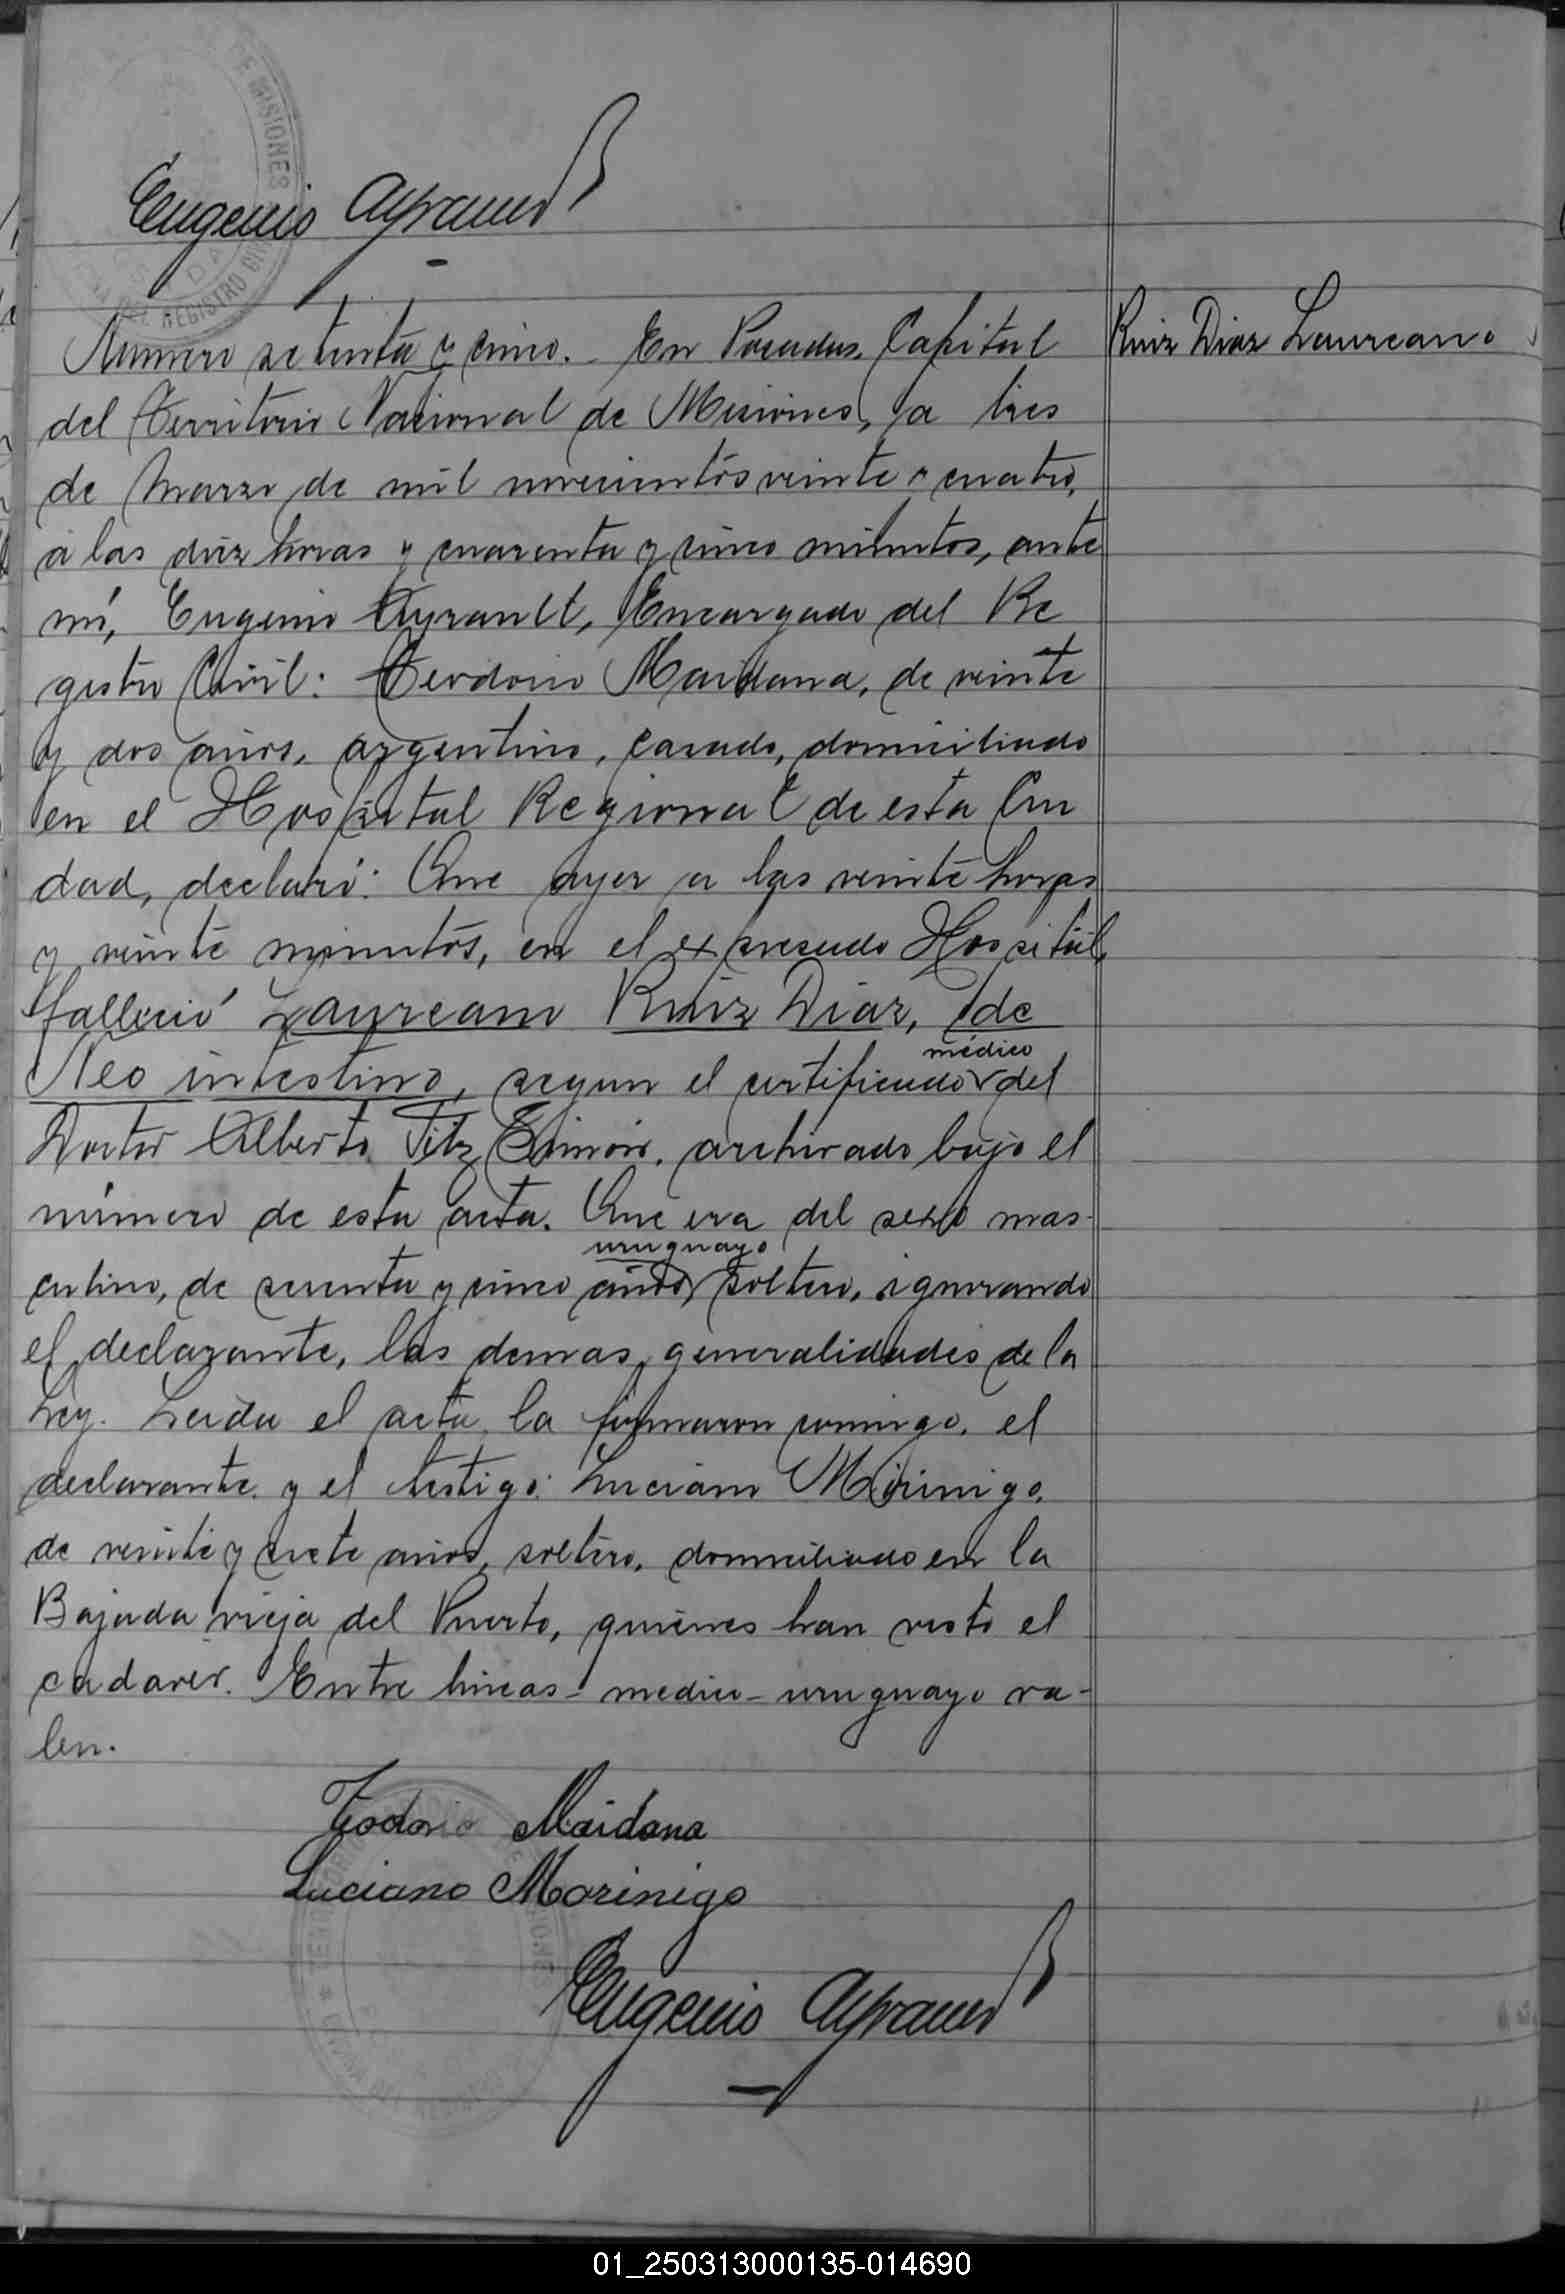 Eugenio Ayrault
Número setenta y cinco.- En Posadas, Capital
Ruiz Diaz Laureano
del Territorio Nacional de Misiones, a tres
de Marzo de mil novecientos veinte y cuatro,
a las diez horas y cuarenta y cinco minutos, ante
mí, Eugenio Ayrault, Encargado del Re
gistro Civil: Teodorio Maidana, de veinte
y dos años, argentino, casado, domiciliado
en el Hospital Regional de esta Ciu
dad, declaró: Que ayer a las veinte horas
y veinte minutos, en el expresado Hospital,
falleció Laureano Ruiz Diaz, de
médico
Neo intestino, segun el certificado del
Doctor Alberto Fitz Simón, archivado bajo el
número de esta acta. Que era del sexo mas-
uruguayo
culino, de sesenta y cinco años, soltero, ignorando
el declarante, las demas generalidades de la
Ley. Leida el acta, la firmaron conmigo, el
declarante y el testigo: Luciano Morinigo,
de veinte y siete años, soltero, domiciliado en la
Bajada vieja del Puerto, quienes han visto el
cadaver. Entre lineas - medico - uruguayo va-
len.
Teodorio Maidana
Luciano Morinigo
Eugenio Ayrault
01_250313000135-014690